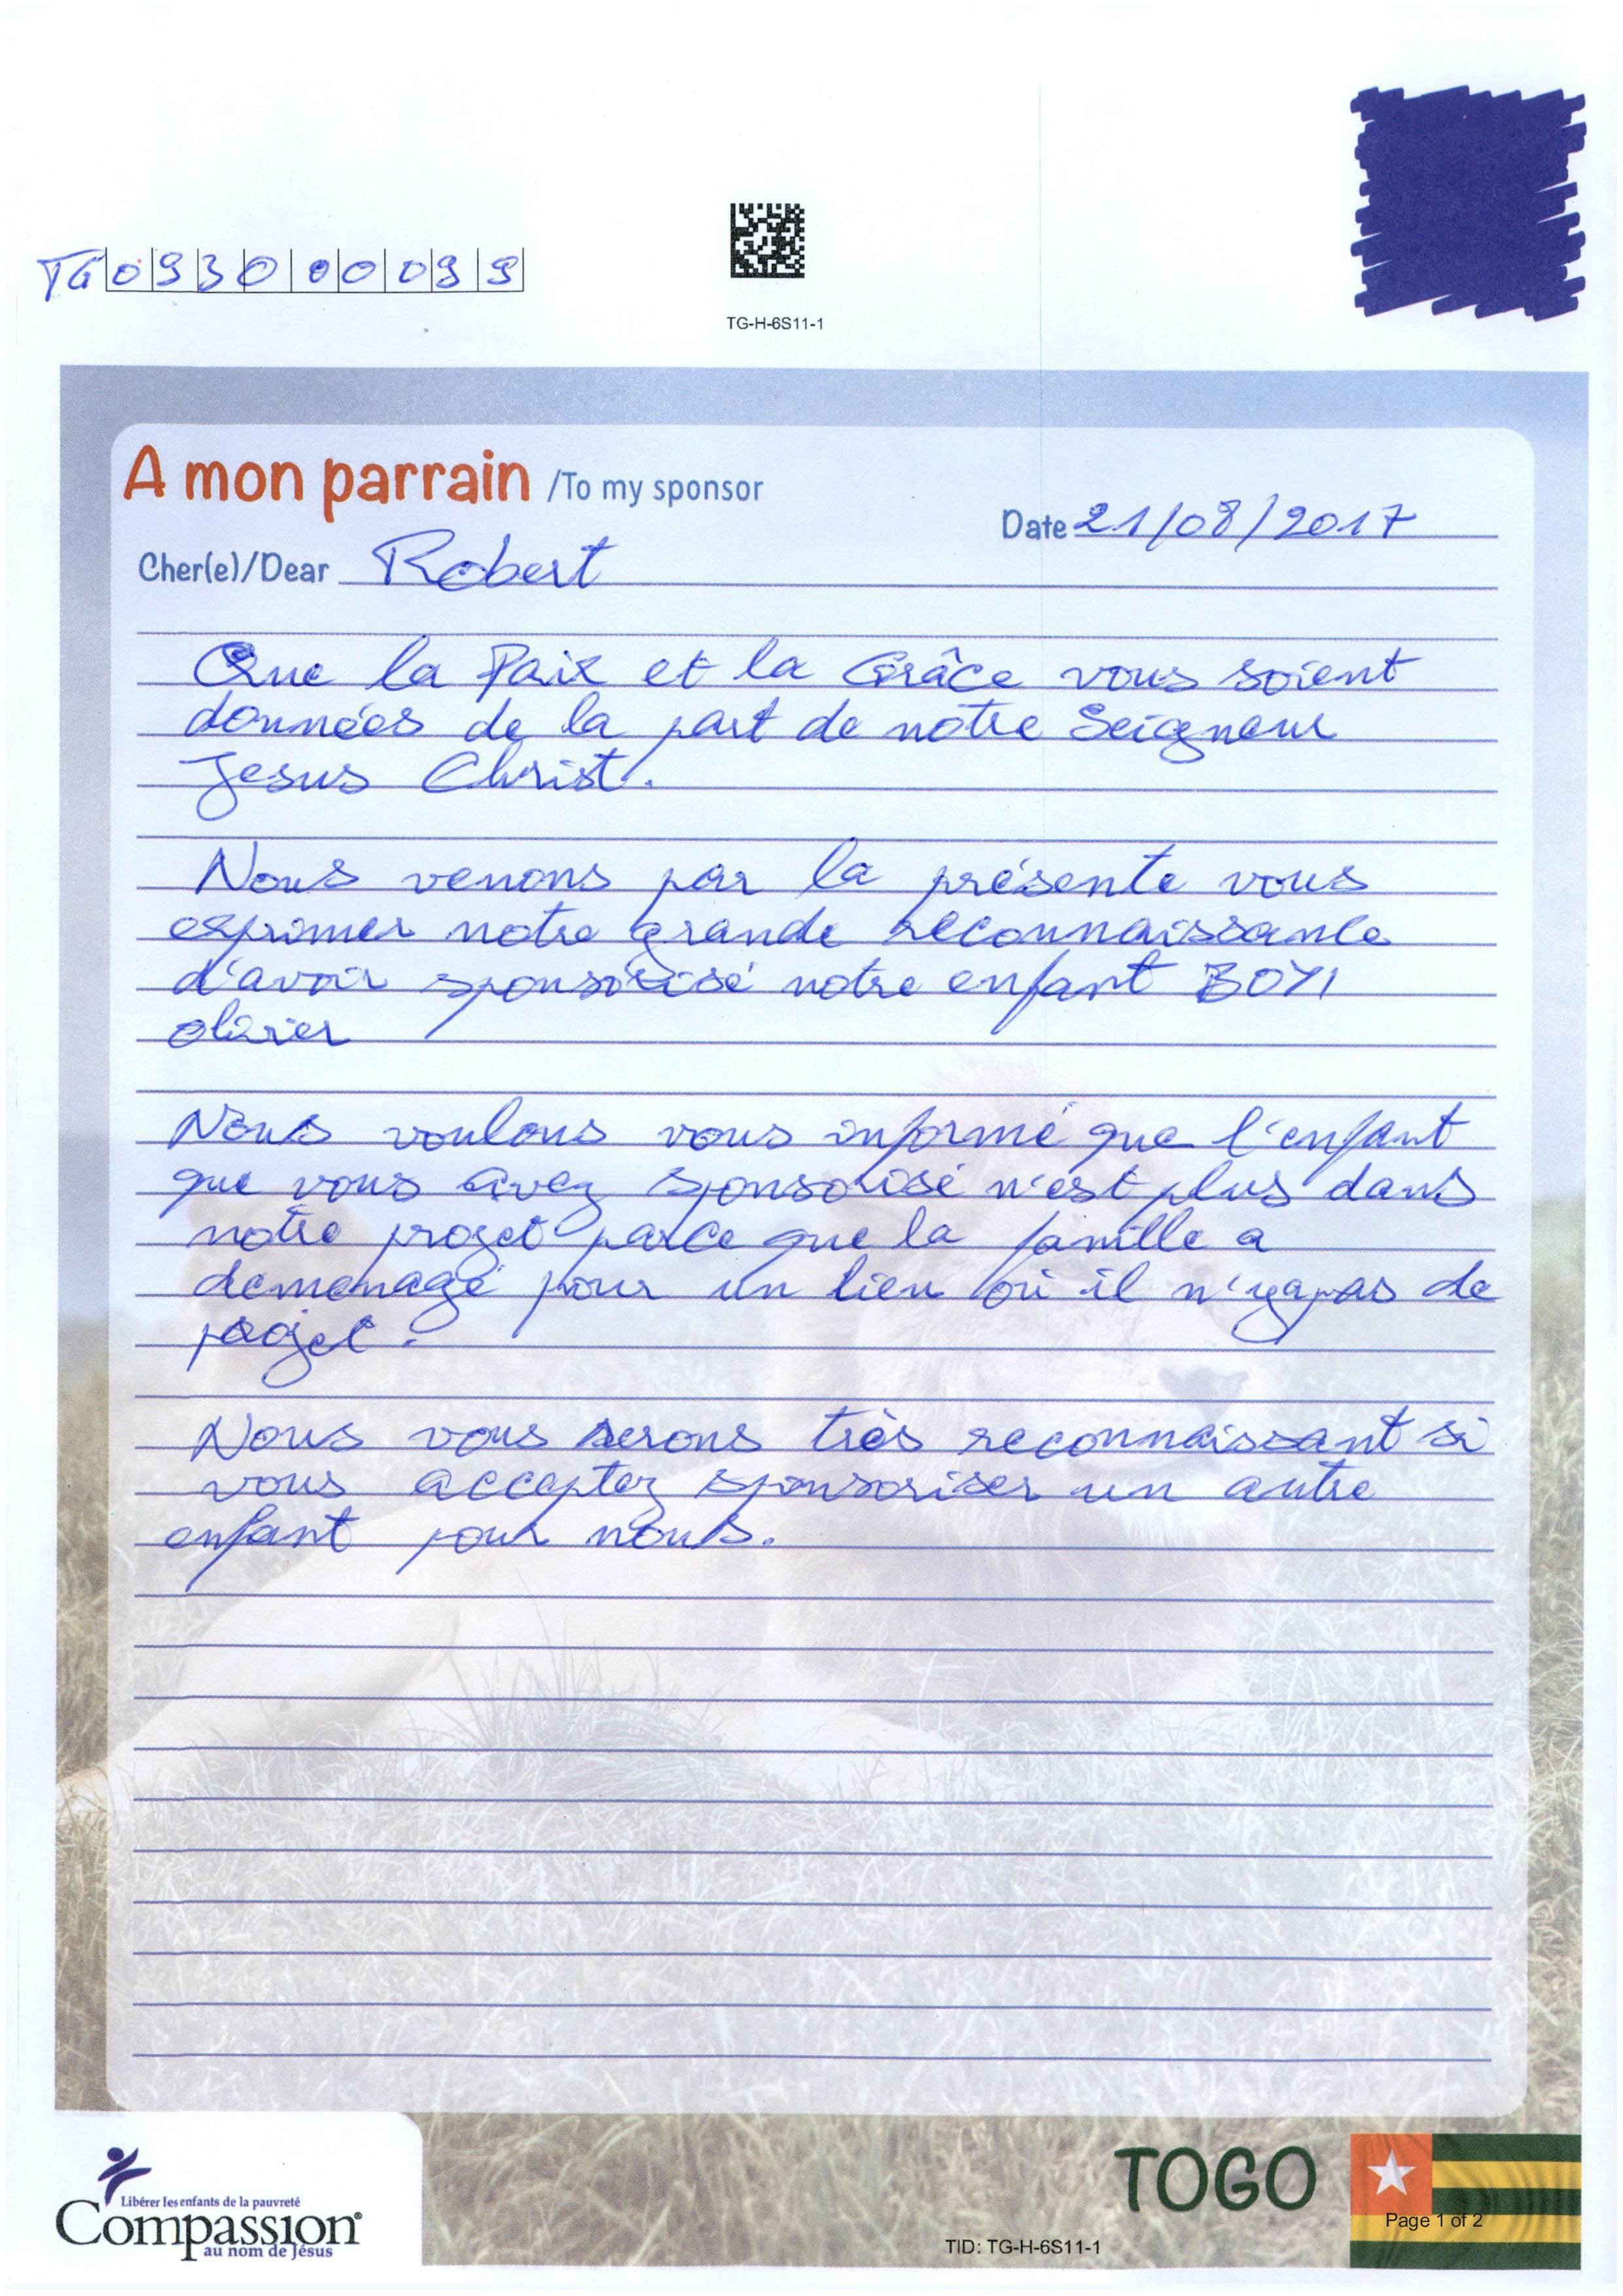 TG093000099
TG-H-6S11-1
A mon parrain /To my sponsor
Date 21/08/2017
Cher(e)/Dear Robert
Que la Paix et la Grâce vous soient
données de la part de notre Seigneur
Jesus Christ.
Nous venons par la présente vous
exprimer notre grande reconnaissance
d'avoir sponsorisé notre enfant BOYI
olivier
Nous voulons vous informé que l'enfant
que vous avez sponsorisé n'est plus dans
notre projet parce que la famille a
demenagé pour un lieu où il n'ya pas de
projet.
Nous vous serons très reconnaissant si
vous acceptez sponsoriser un autre
enfant pour nous.
Libérer les enfants de la pauvreté
Compassion®
au nom de Jésus
TOGO
Page 1 of 2
TID: TG-H-6S11-1